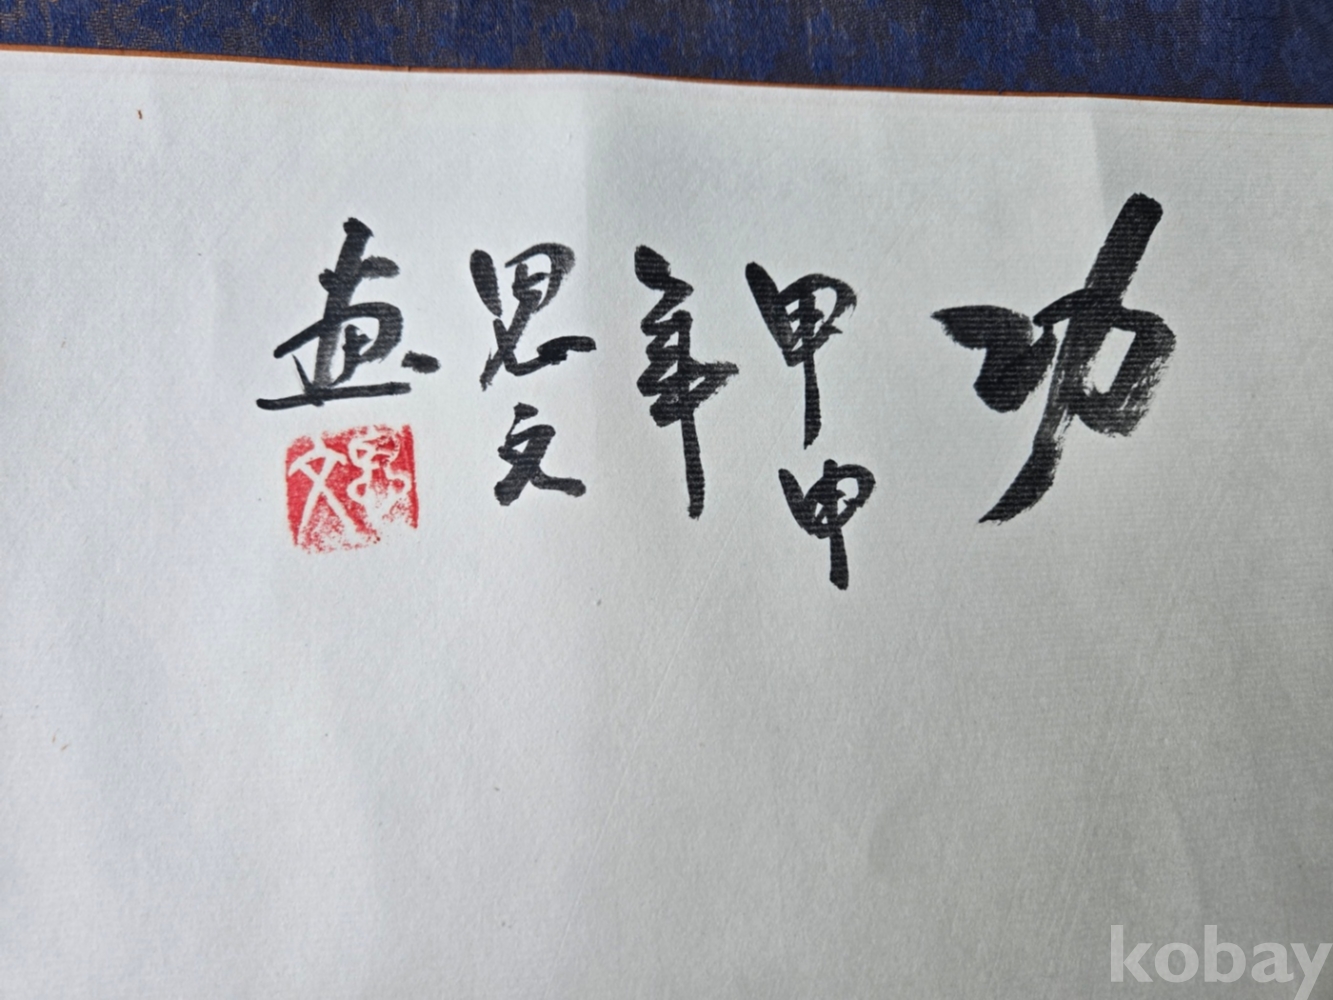 功
甲申
年
思文
画
kobay